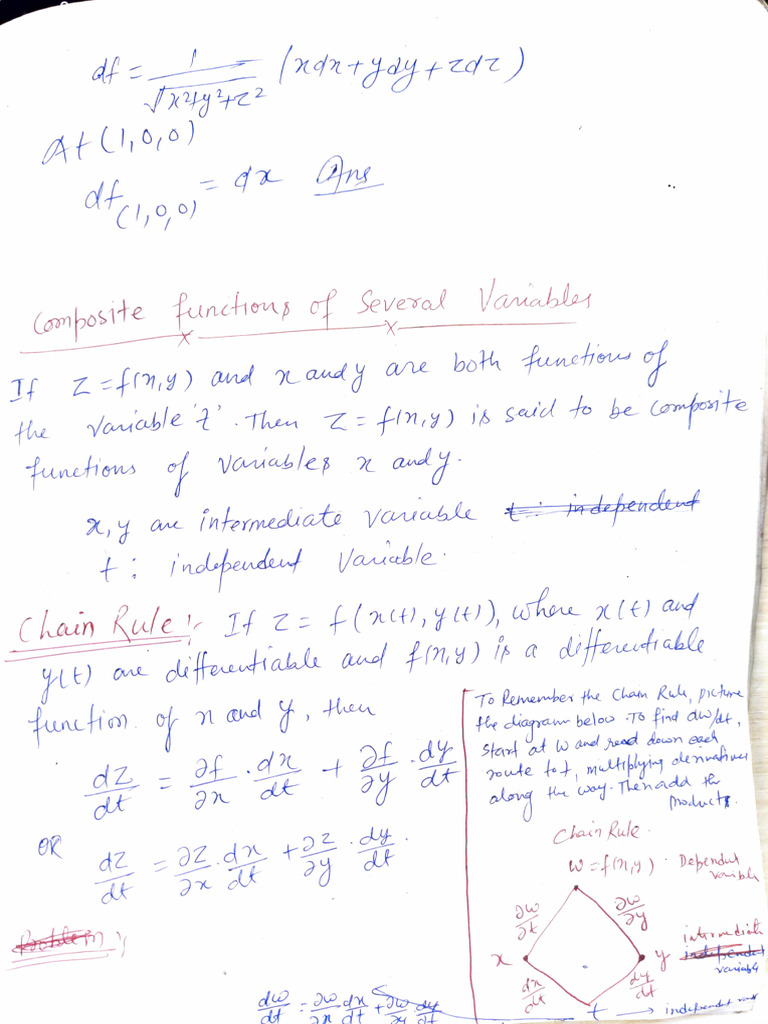 df = 1/√x²+y²+z² (xdx+ydy+zdz)
At (1,0,0)
df(1,0,0) = dx Ans
Composite functions of Several Variables
If z=f(x,y) and x and y are both functions of
the variable 't'. Then z=f(x,y) is said to be composite
functions of variables x and y.
x, y are intermediate variable t: independent
t: independent variable.
Chain Rule:- If z = f(x(t), y(t)), where x(t) and
y(t) are differentiable and f(x,y) is a differentiable
function of x and y, then
dz/dt = ∂f/∂x . dx/dt + ∂f/∂y . dy/dt
OR
dz/dt = ∂z/∂x . dx/dt + ∂z/∂y . dy/dt.
Problem:
To Remember the Chain Rule, picture
the diagram below. To find dw/dt,
start at w and read down each
route to t, multiplying derivatives
along the way. Then add the
products.
Chain Rule.
w = f(x,y) . Dependent
variable
∂w/∂t
∂w/∂y
intermediate
x
y independent
variable
dx/dt
dy/dt
t → independent
dw/dt = ∂w/∂x dx/dt + ∂w/∂y dy/dt